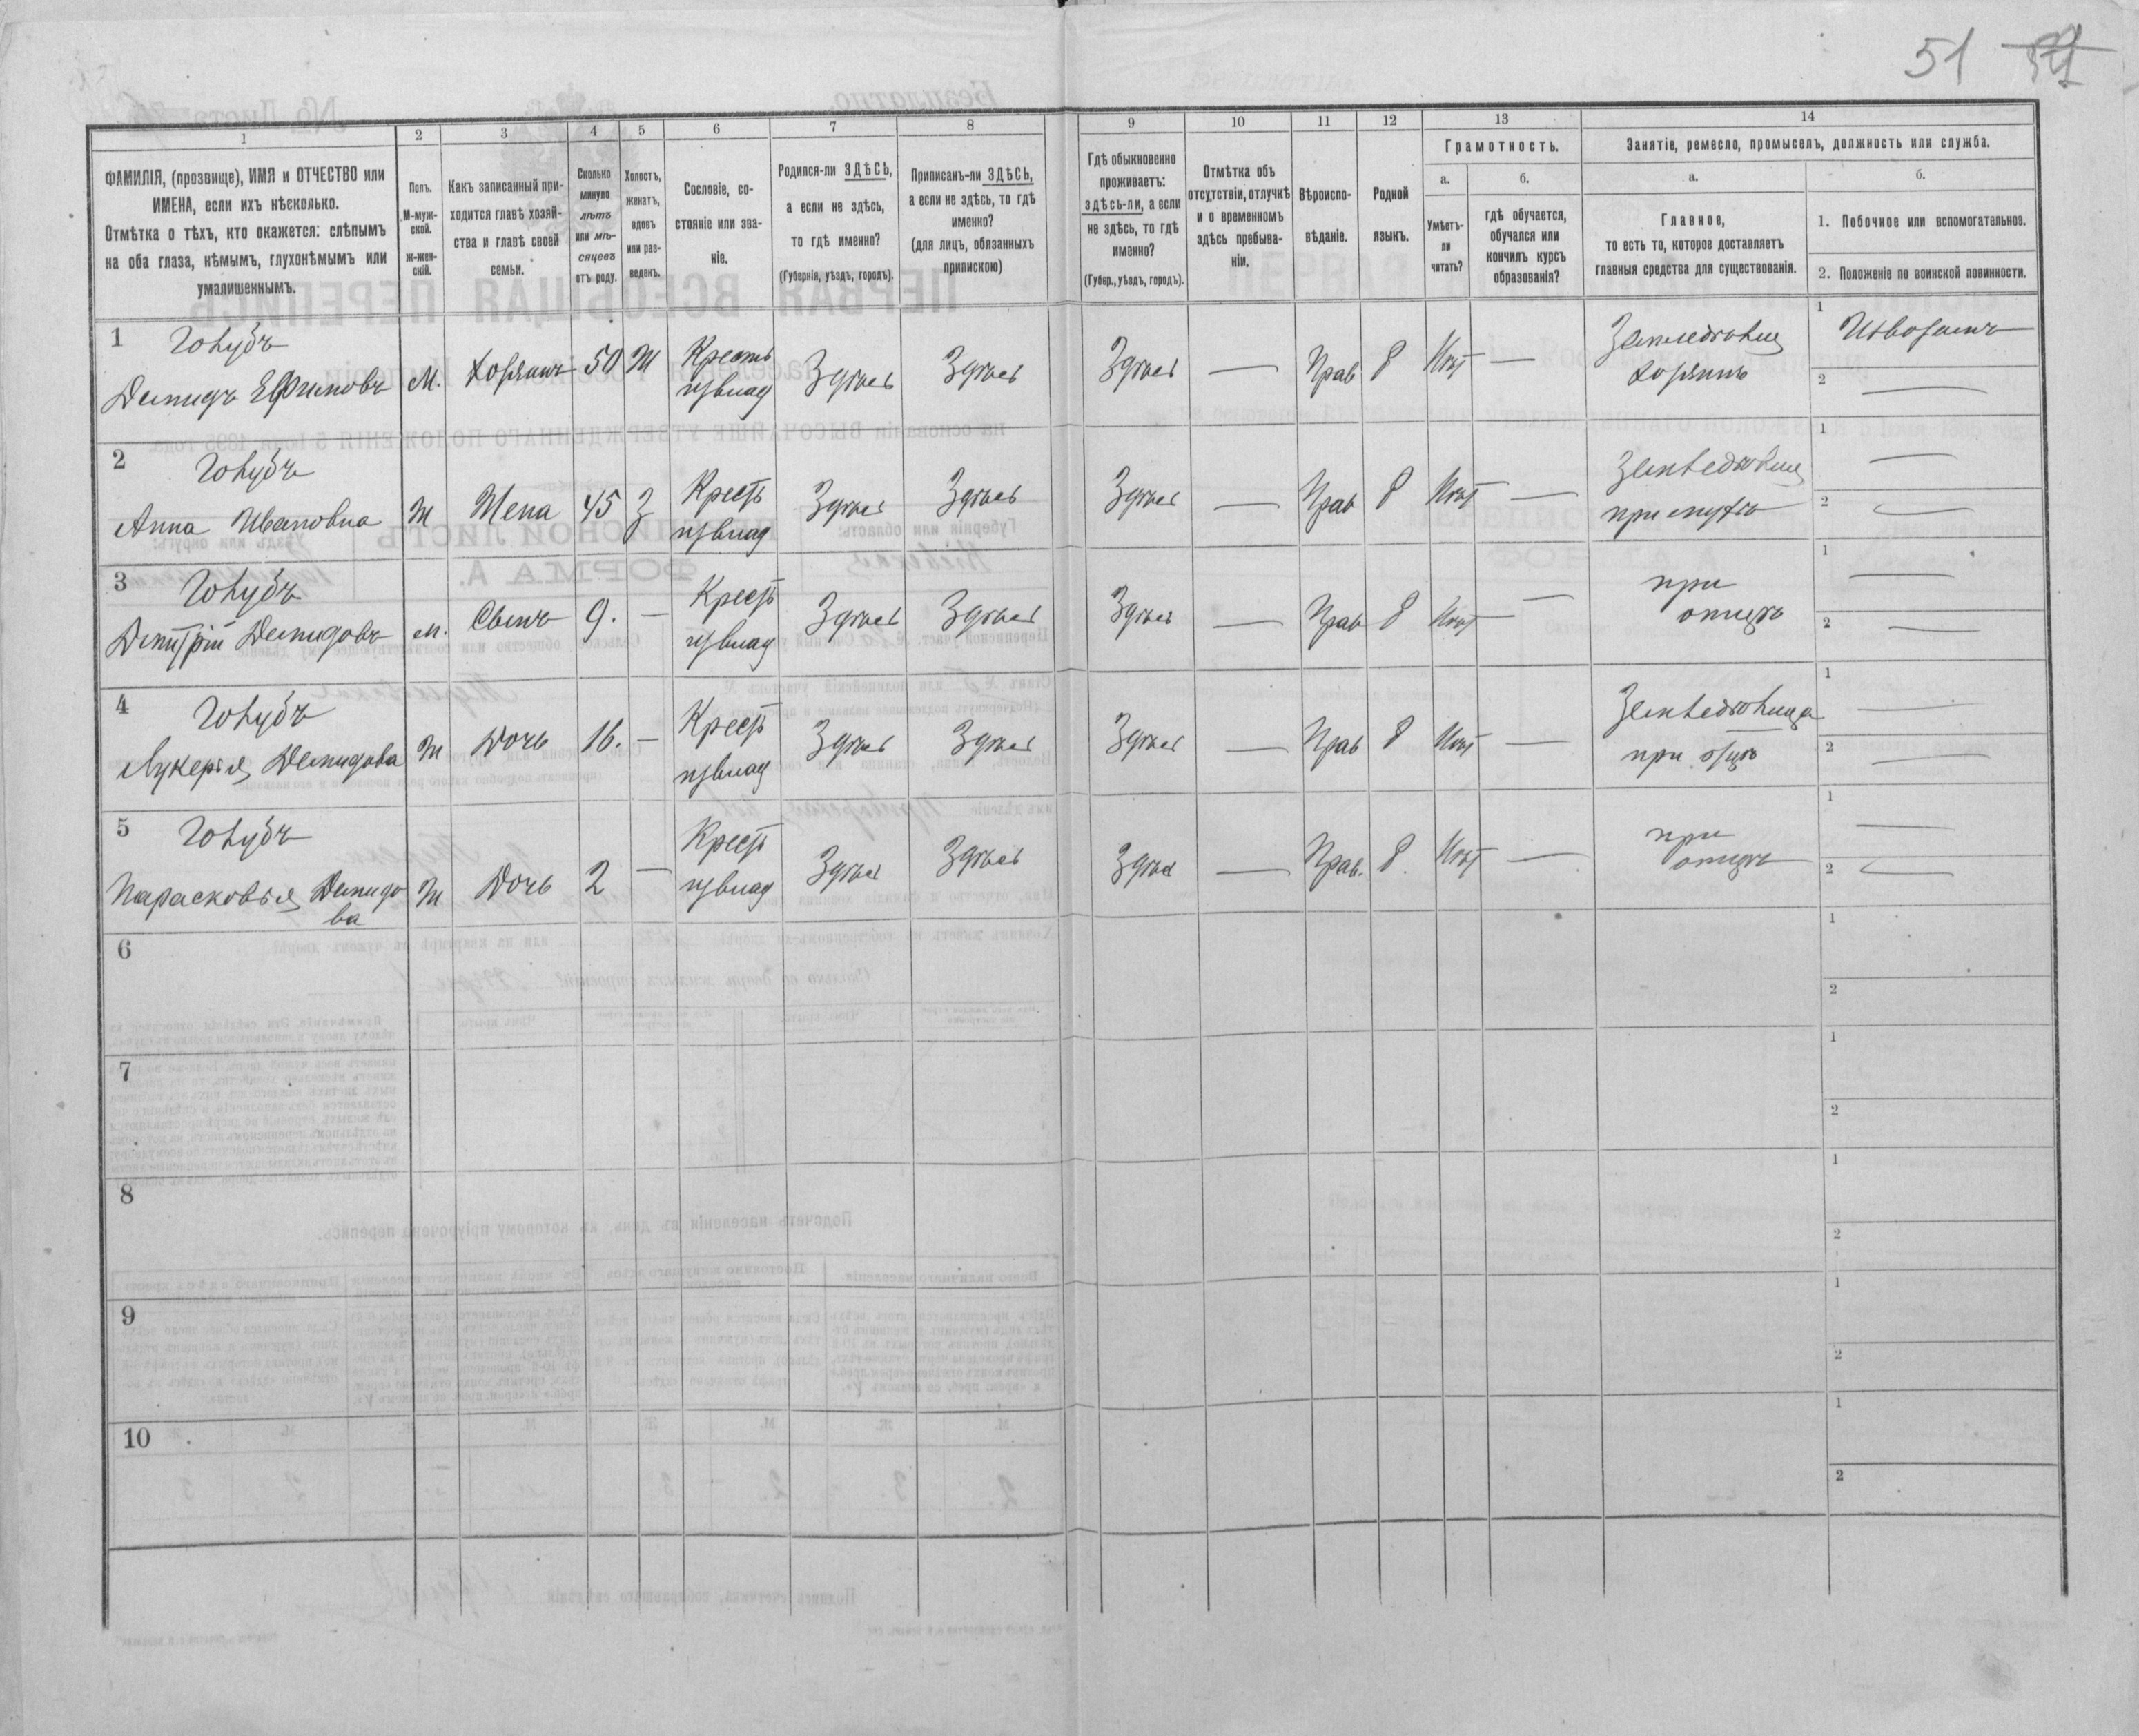 51
1
2
3
4
5
6
7
8
9
10
11
12
13
14
ФАМИЛІЯ, (прозвище), ИМЯ и ОТЧЕСТВО или
ИМЕНА, если ихъ нѣсколько.
Отмѣтка о тѣхъ, кто окажется: слѣпымъ
на оба глаза, нѣмымъ, глухонѣмымъ или
умалишеннымъ.
Полъ.
М-муж-
ской.
ж-жен-
скій.
Какъ записанный при-
ходится главѣ хозяй-
ства и главѣ своей
семьи.
Сколько
минуло
лѣтъ
или мѣ-
сяцевъ
отъ роду.
Холостъ,
женатъ,
вдовъ
или раз-
веденъ.
Сословіе, со-
стояніе или зва-
ніе.
Родился-ли ЗДѢСЬ,
а если не здѣсь,
то гдѣ именно?
(Губернія, уѣздъ, городъ).
Приписанъ-ли ЗДѢСЬ,
а если не здѣсь, то гдѣ
именно?
(для лицъ, обязанныхъ
припискою)
Гдѣ обыкновенно
проживаетъ:
здѣсь-ли, а если
не здѣсь, то гдѣ
именно?
(Губер., уѣздъ, городъ).
Отмѣтка объ
отсутствіи, отлучкѣ
и о временномъ
здѣсь пребыва-
ніи.
Вѣроиспо-
вѣданіе.
Родной
языкъ.
Грамотность.
а.
Умѣетъ-
ли
читать?
б.
гдѣ обучается,
обучался или
кончилъ курсъ
образованія?
Занятіе, ремесло, промыселъ, должность или служба.
а.
Главное,
то есть то, которое доставляетъ
главныя средства для существованія.
б.
1. Побочное или вспомогательное.
2. Положеніе по воинской повинности.
1 Голубъ
Демидъ Ефимовъ
М.
Хозяинъ
50
Ж
Крестъ
извлад
Здѣсь
Здѣсь
Здѣсь
—
Прав
Нѣт
—
Хозяинъ
1 Извозъ
2 —
2 Голубъ
Анна Ивановна
Ж
Жена
45
З
Крест
извлад
Здѣсь
Здѣсь
Здѣсь
—
Прав
Нѣт
—
при мужѣ
1 —
2 —
3 Голубъ
Дмитрій Демидовъ
м.
Сынъ
9.
—
Крест
извлад
Здѣсь
Здѣсь
Здѣсь
—
Прав
Нѣт
—
при
отцѣ
1 —
2 —
4 Голубъ
Лукерія Демидова
Ж
Дочь
16.
—
Крест
извлад
Здѣсь
Здѣсь
Здѣсь
—
Прав
Нѣт
—
Земледѣлица
при отцѣ
1 —
2 —
5 Голубъ
Парасковія Демидо
ва
Ж
Дочь
2
—
Крест
извлад
Здѣсь
Здѣсь
Здѣсь
—
Прав.
Нѣт
—
при
отцѣ
1 —
2 —
6
1
2
7
1
2
8
1
2
9
1
2
10
1
2